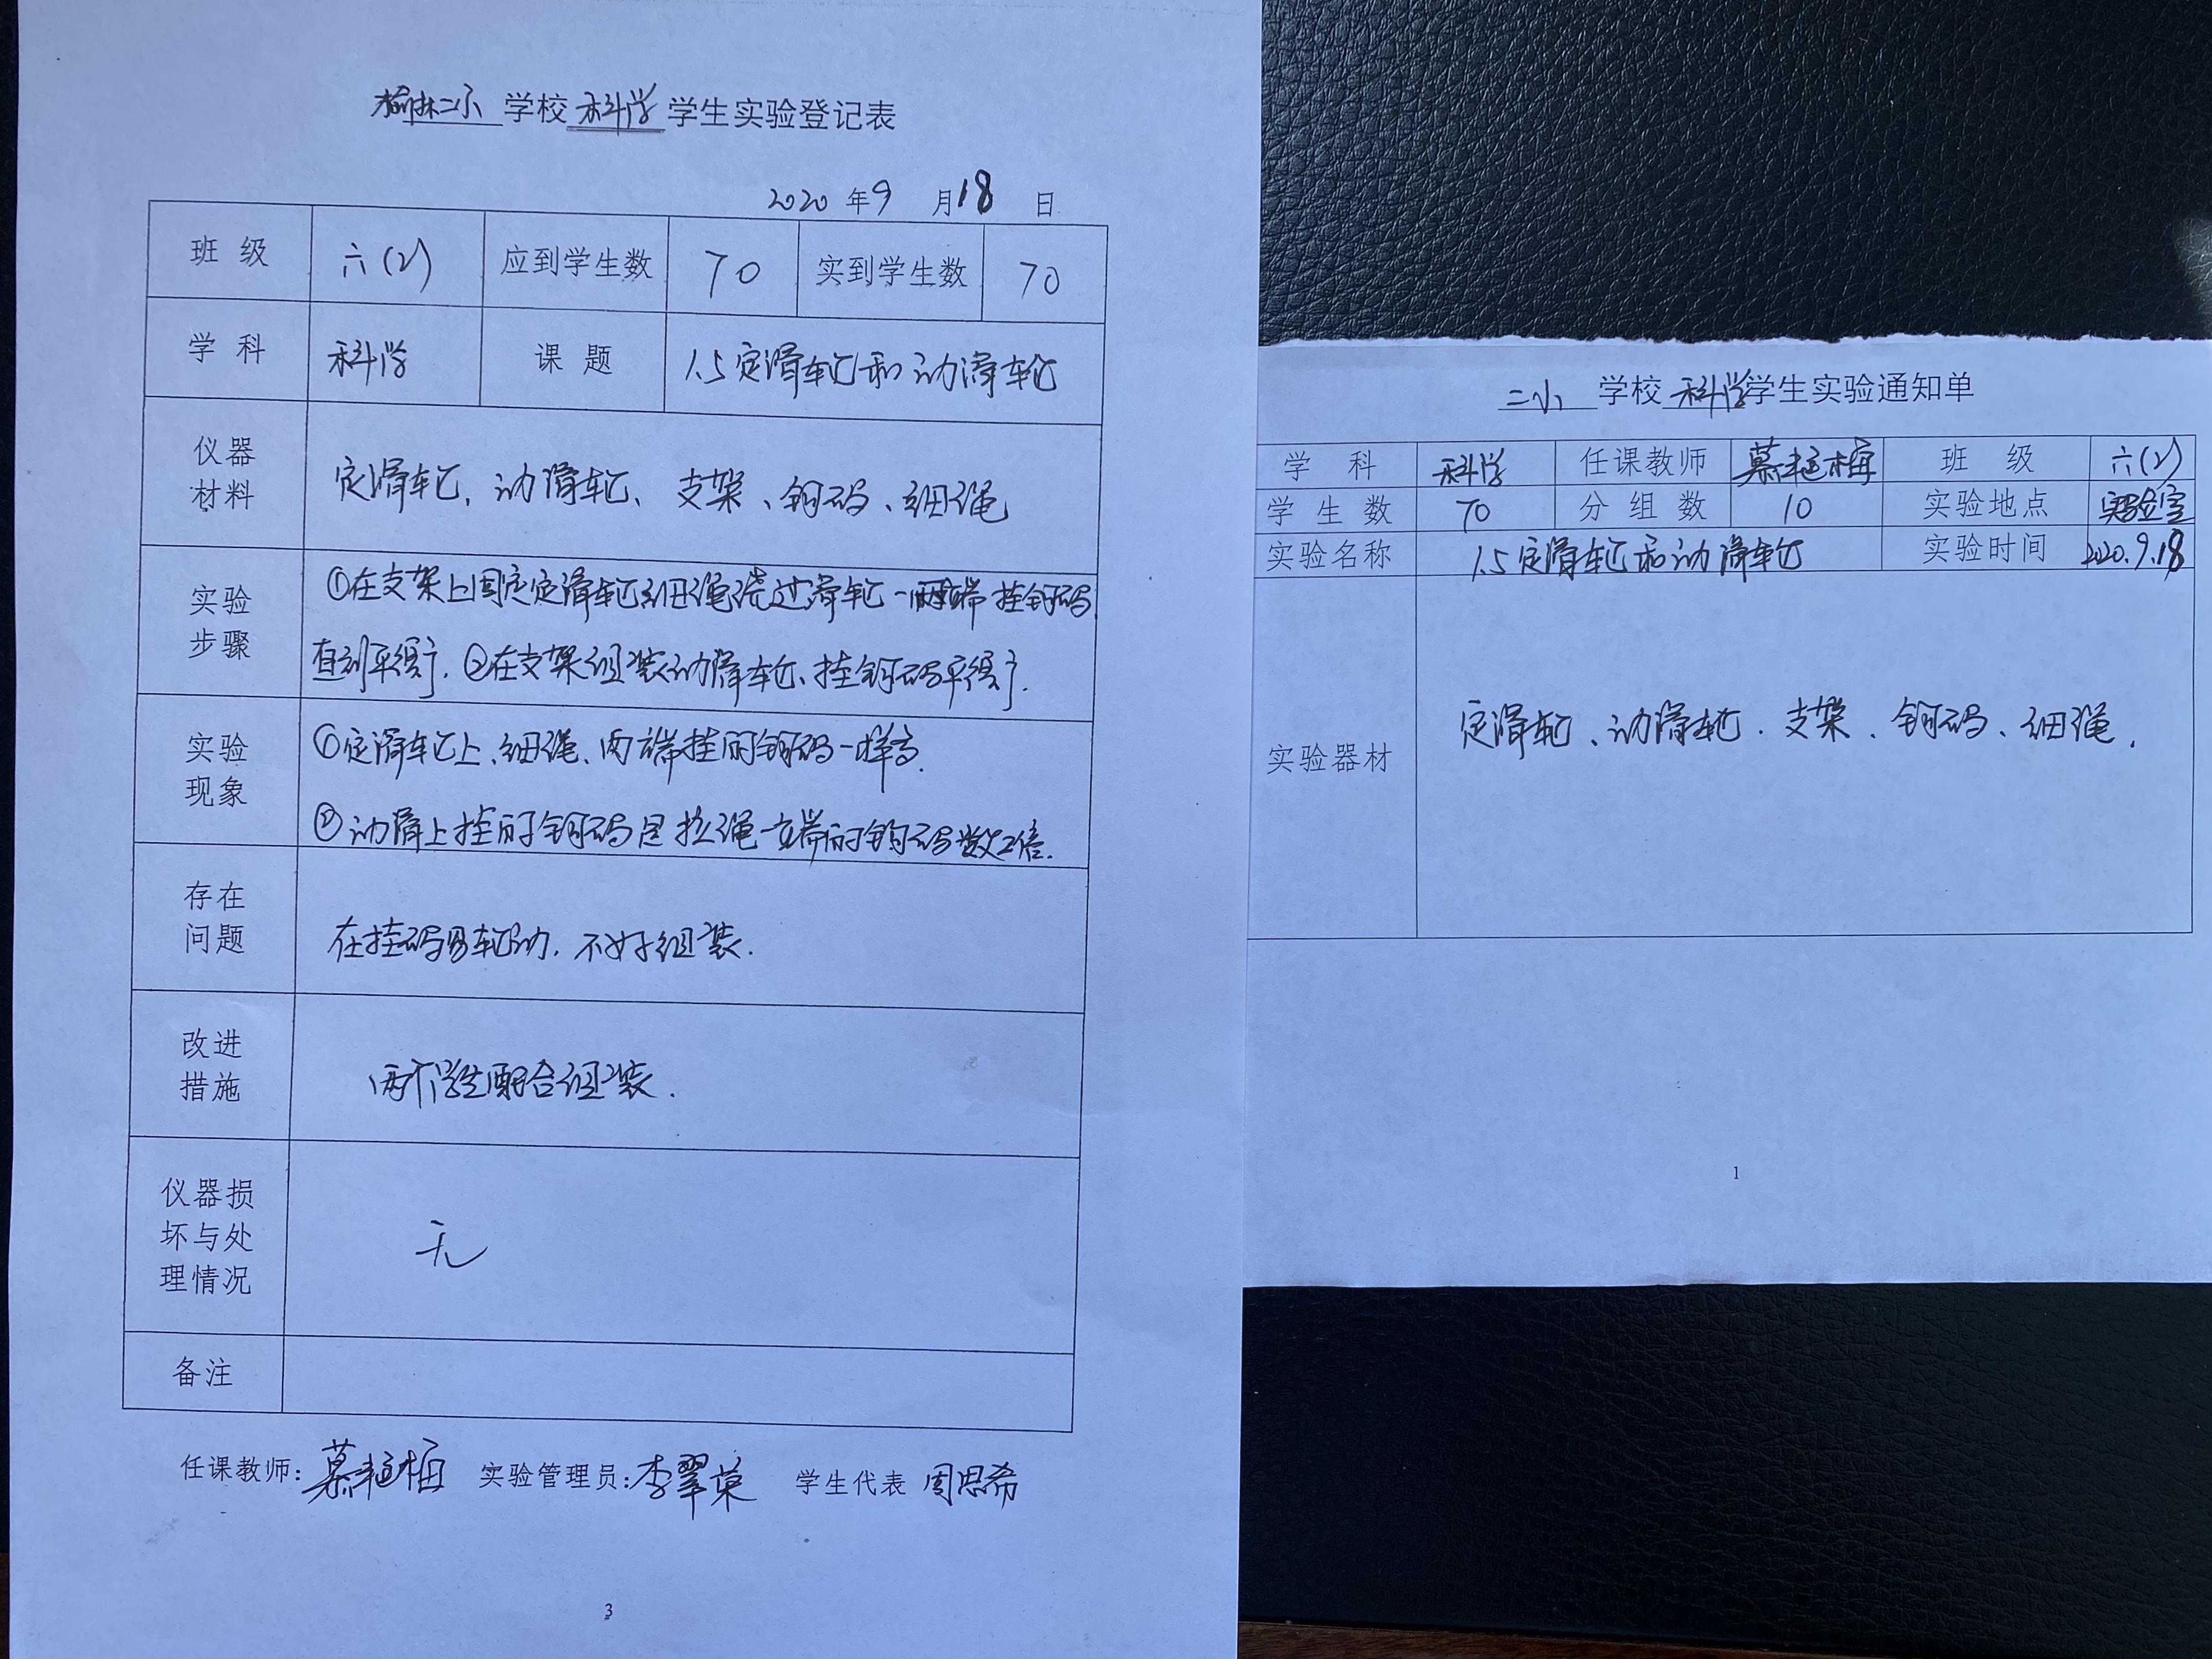 榆林二小 学校 科学 学生实验登记表
2020 年 9 月 18 日
班 级 六(2) 应到学生数 70 实到学生数 70
学 科 科学 课 题 1.5定滑轮和动滑轮
仪器
材料
定滑轮、动滑轮、支架、钩码、细绳
实验
步骤
①在支架上固定定滑轮细绳绕过滑轮一两端挂钩码
直到平衡. ②在支架组装动滑轮、挂钩码平衡.
实验
现象
①定滑轮上、细绳、两端挂的钩码一样多.
②动滑上挂的钩码是拉绳一端的钩码数2倍.
存在
问题
在挂码易轮动, 不好组装.
改进
措施
两个学生配合组装.
仪器损
坏与处
理情况
无
备注
任课教师: 慕艳梅 实验管理员: 李翠荣 学生代表 周思希
3
二小 学校 科学学生实验通知单
学 科 科学 任课教师 慕艳梅 班 级 六(2)
学 生 数 70 分 组 数 10 实验地点 实验室
实验名称 1.5定滑轮和动滑轮 实验时间 2020.9.18
实验器材 定滑轮、动滑轮.支架、钩码、细绳.
1